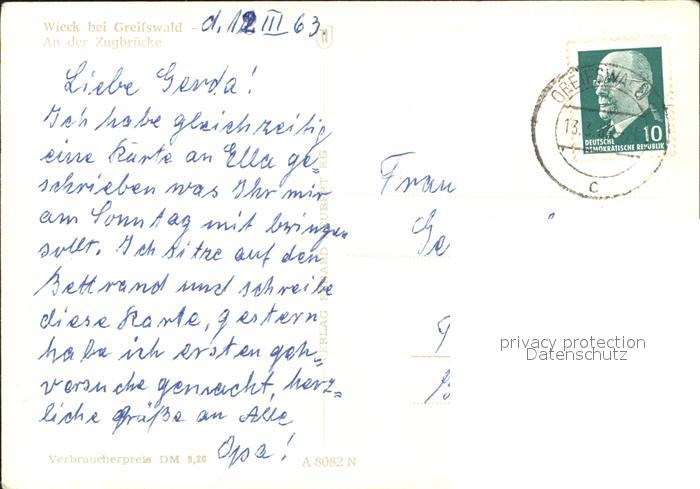 Wieck bei Greifswald – d. 12 III 63.
An der Zugbrücke
Liebe Gerda!
Ich habe gleichzeitig
eine Karte an Ella ge-
schrieben was Ihr mir
am Sonntag mit bringen
sollt. Ich sitze auf den
Bettrand und schreibe
diese Karte, gestern
habe ich ersten geh-
versuche gemacht, herz-
liche Grüße an Alle
Opa!
Verbraucherpreis DM 0,20
A 8082 N
VERLAG
GREIFSWALD
13.3.
c
10
DEUTSCHE
DEMOKRATISCHE REPUBLIK
Frau
Ge
privacy protection
Datenschutz